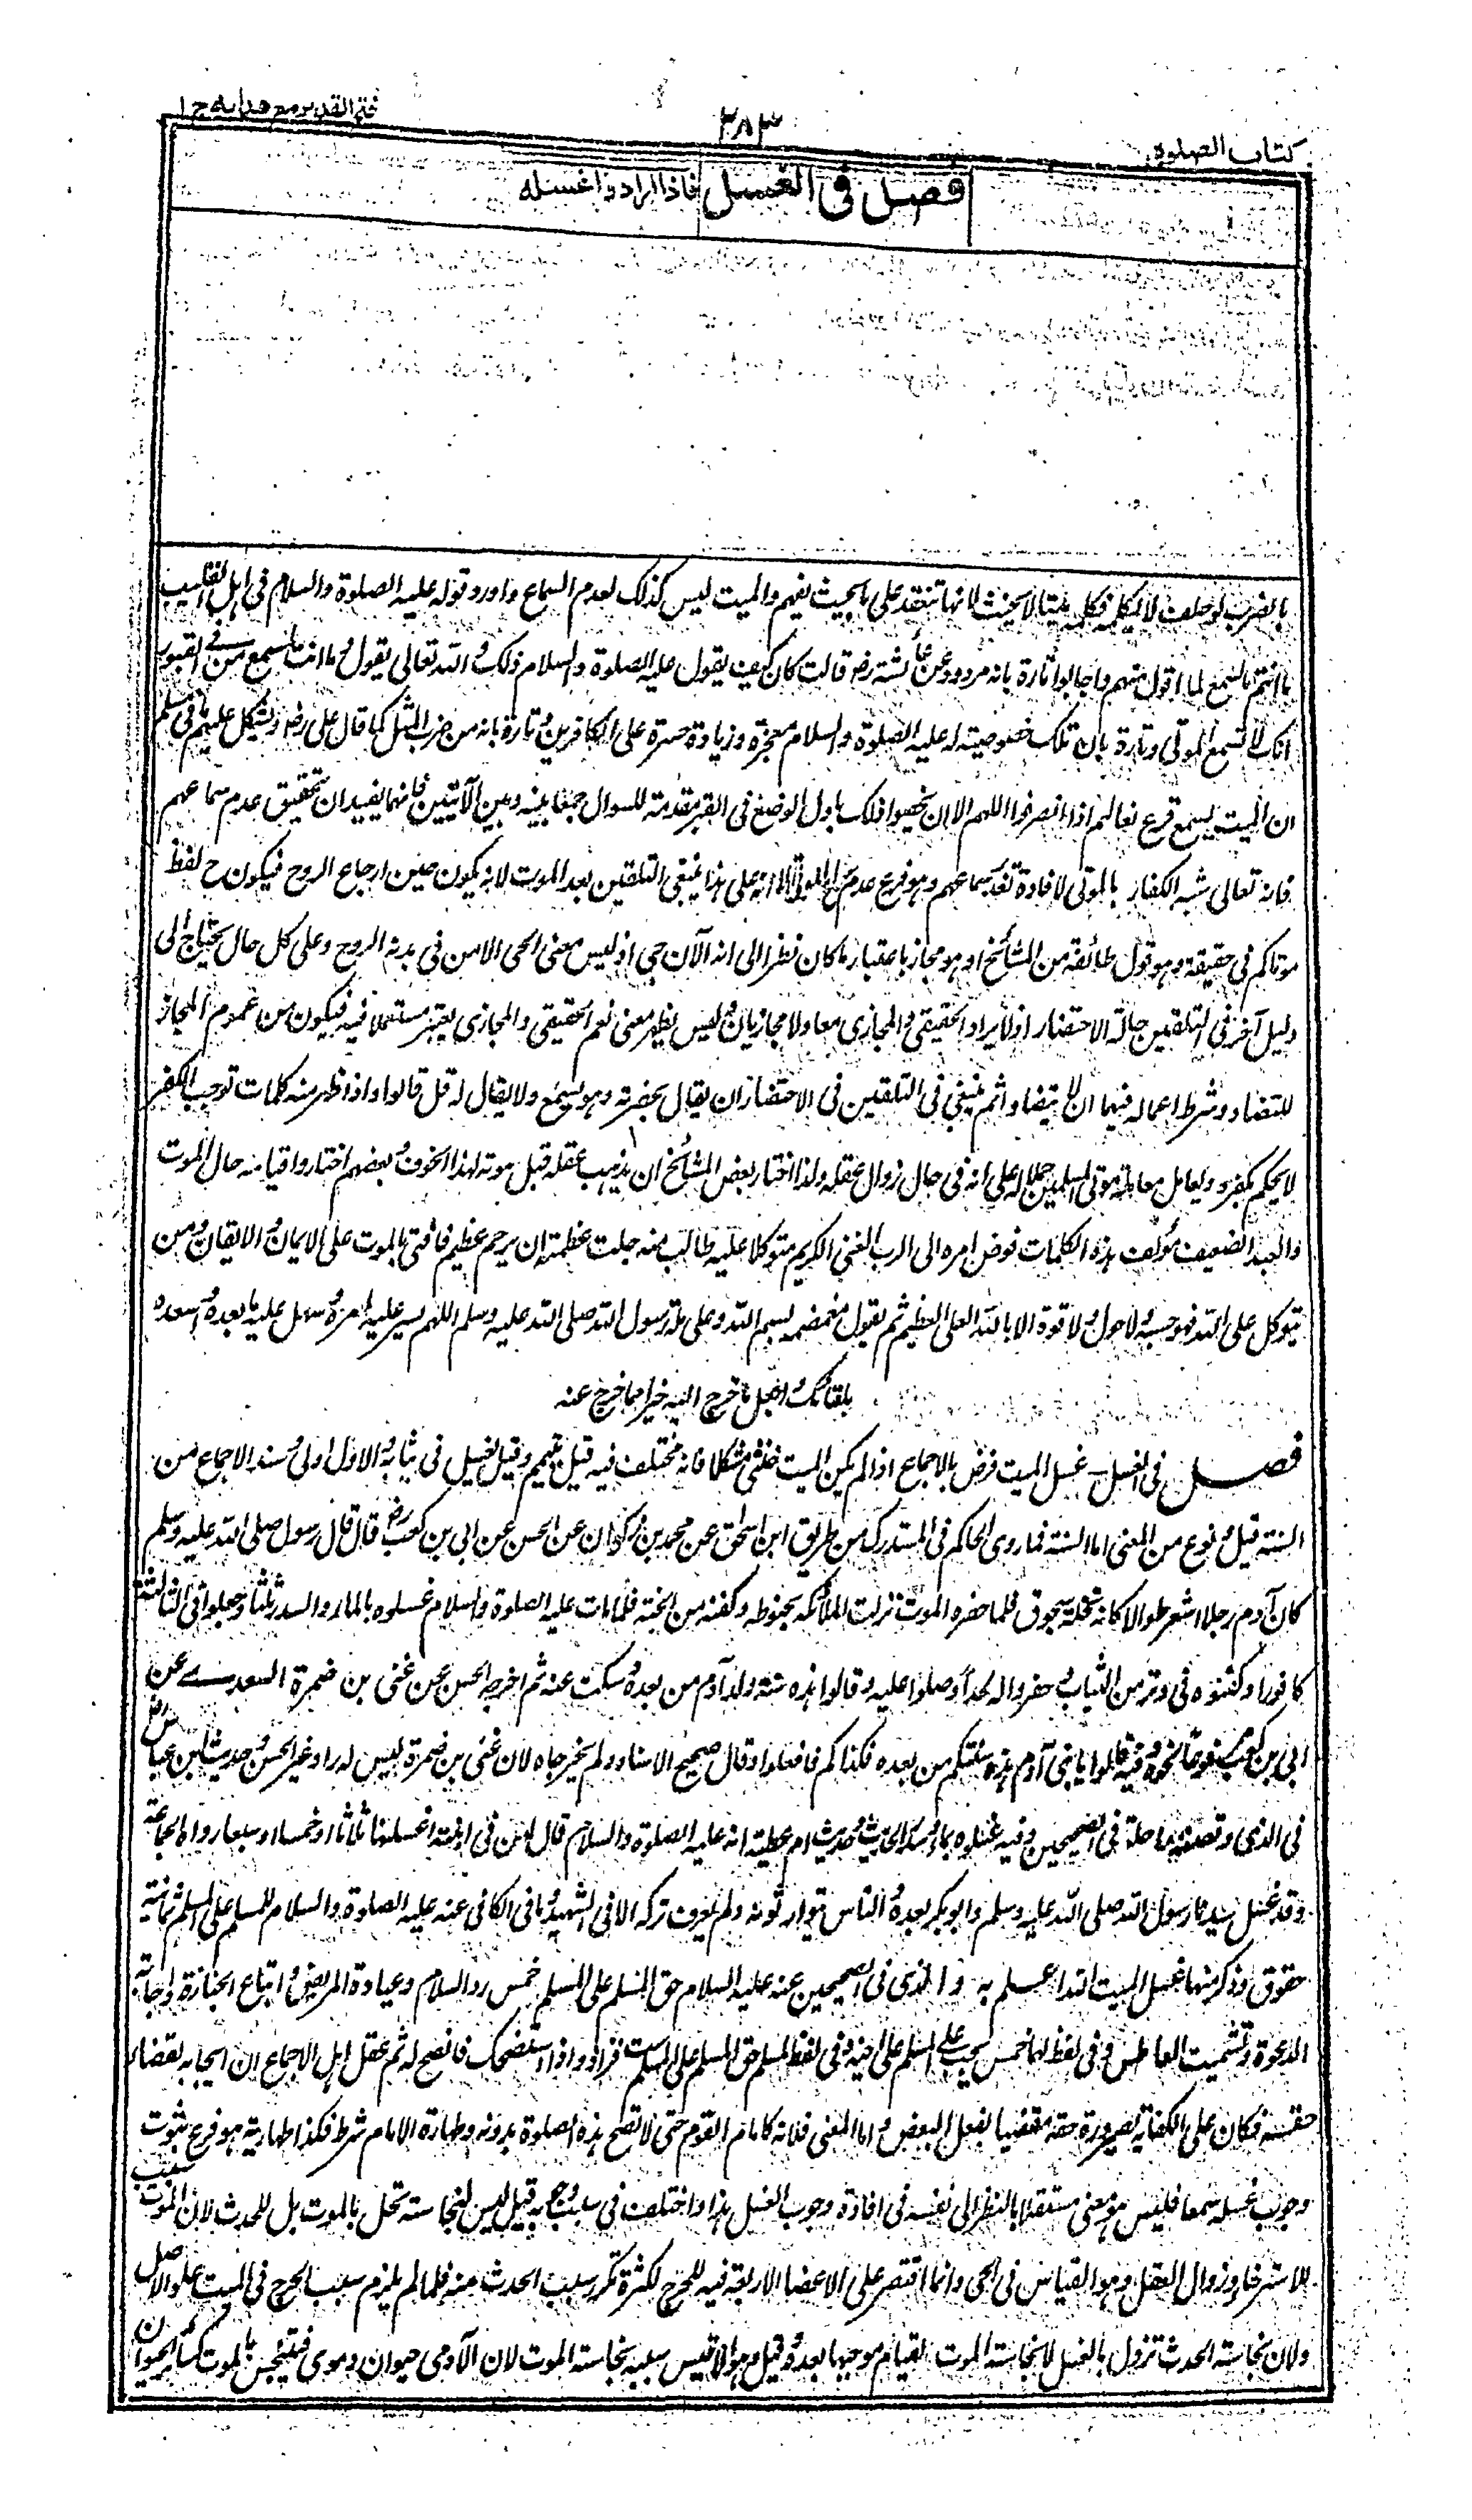 كتاب الصلوة
٢٨٣
فتح القدير مع هدايه ج ١
فصل في الغسل فاذا ارادوا غسله
بالضرب لو حلف لا يكلمه فكلمه ميتا لا يحنث لانها تنعقد على ما بحيث يفهم والميت ليس كذلك لعدم السماع واورد قوله عليه الصلوة والسلام في اهل القليب
ما انتم باسمع لما اقول منهم واجابوا تارة بانه مردود عن عائشة رض قالت كيف يقول عليه الصلوة والسلام ذلك والله تعالى يقول وما انت بمسمع من في القبور
انك لا تسمع الموتى وتارة بان تلك خصوصية له عليه الصلوة والسلام معجزة وزيادة حسرة على الكافرين وتارة بانه من ضرب المثل كما قال على رض ويشكل عليهم ما في مسلم
ان الميت يسمع قرع نعالهم اذا انصرفوا اللهم الا ان يخصوا ذلك باول الوضع في القبر مقدمة للسوال جمعا بينه وبين الآيتين فانهما يفيدان تحقيق عدم سماعهم
فانه تعالى شبه الكفار بالموتى لافادة تعذر سماعهم وهو فرع عدم سماع الموتى الا انه على هذا ينبغى التلقين بعد الموت لانه يكون حين ارجاع الروح فيكون ح لفظ
موتاكم في حقيقة وهو قول طائفة من المشائخ او هو مجاز باعتبار ما كان نظرا الى انه الآن حى اذ ليس معنى الحى الا من في بدنه الروح وعلى كل حال يحتاج الى
دليل آخر في التلقين حالة الاحتضار اذ لا يراد الحقيقى والمجازى معا ولا مجازيان وليس يظهر معنى يعم الحقيقى والمجازى يعتبر مستعملا فيه فيكون من عموم المجاز
للتضاد وشرط اعماله فيهما ان لا يتضادا ثم ينبغى في التلقين في الاحتضار ان يقال بحضرته وهو يسمع ولا يقال له قل قالوا واذا ظهر منه كلمات توجب الكفر
لا يحكم بكفره ويعامل معاملة موتى المسلمين حملا له على انه في حال زوال عقله ولذا اختار بعض المشائخ ان يذهب عقله قبل موته لهذا الخوف وبعضهم اختاروا قيامه حال الموت
والعبد الضعيف مؤلف هذه الكلمات فوض امره الى الرب الغنى الكريم متوكلا عليه طالبا منه جلت عظمته ان يرحم عظيم فاقتى بالموت على الايمان والايقان ومن
يتوكل على الله فهو حسبه ولا حول ولا قوة الا بالله العلى العظيم ثم يقول مغمضه بسم الله وعلى ملة رسول الله صلى الله عليه وسلم اللهم يسر عليه امره وسهل عليه ما بعده واسعده
بلقائك واجعل ما خرج اليه خيرا مما خرج عنه
فصل في الغسل غسل الميت فرض بالاجماع اذا لم يكن الميت خنثى مشكلا فانه مختلف فيه قيل ييمم وقيل يغسل في ثيابه والاول اولى وسند الاجماع من
السنة قيل ونوع من المعنى اما السنة فما روى الحاكم في المستدرك من طريق ابن اسحق عن محمد بن ذكوان عن الحسن عن ابى بن كعب رض قال قال رسول صلى الله عليه وسلم
كان آدم رجلا اشعر طوالا كانه نخلة سحوق فلما حضره الموت نزلت الملائكة بحنوطه وكفنه من الجنة فلما مات عليه الصلوة والسلام غسلوه بالماء والسدر ثلثا وجعلوا في الثالثة
كافورا وكفنوه في وتر من الثياب وحفروا له لحدا وصلوا عليه وقالوا هذه سنة ولد آدم من بعده وسكت عنه ثم اخرجه عن الحسن عن عتى بن ضمرة السعدى عن
ابى بن كعب مرفوعا نحوه وفيه قالوا يا بنى آدم هذه سنتكم من بعده فكذاكم فافعلوا وقال صحيح الاسناد ولم يخرجاه لان عتى بن ضمرة ليس له راو غير الحسن وحديث ابن عباس رض
في الذى وقصته راحلته في الصحيحين وفيه اغسلوه بماء وسدر الحديث وحديث ام عطية انه عليه الصلوة والسلام قال لهن في ابنته اغسلنها ثلاثا او خمسا او سبعا رواه الجماعة
وقد غسل سيدنا رسول الله صلى الله عليه وسلم وابو بكر بعده والناس يتوارثونه ولم يعرف تركه الا في الشهيد وما في الكافى عنه عليه الصلوة والسلام للمسلم على المسلم ثمانية
حقوق وذكر منها غسل الميت الله اعلم به والذى في الصحيحين عنه عليه السلام حق المسلم على المسلم خمس رد السلام وعيادة المريض واتباع الجنازة واجابة
الدعوة وتشميت العاطس وفي لفظ لهما خمس يجب للمسلم على اخيه وفي لفظ لمسلم حق المسلم على المسلم ست فزاد واذا استنصحك فانصح له ثم عقل اهل الاجماع ان ايجابه لقضاء
حقه فكان على الكفاية لصيرورة حقه مقضيا بفعل البعض و اما المعنى فلانه كامام القوم حتى لا تصح هذه الصلوة بدونه وطهارة الامام شرط فكذا طهارته هو فرع ثبوت
وجوب غسله سمعا فليس هو معنى مستقلا بالنظر الى نفسه في افادة وجوب الغسل هذا واختلف في سبب وجوبه قيل ليس لنجاسة تحل بالموت بل للحدث لان الموت سبب
للاسترخاء وزوال العقل وهو القياس في الحى وانما اقتصر على الاعضاء الاربعة فيه للحرج لكثرة تكرر سبب الحدث منه فلما لم يلزم سبب الحرج في الميت عاد الاصل
ولان نجاسة الحدث تزول بالغسل لا نجاسة الموت لقيام موجبها بعده وقيل وهو الاقيس سببه نجاسة الموت لان الآدمى حيوان دموى فيتنجس بالموت كسائر الحيوان